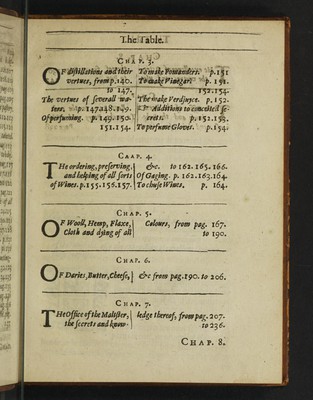 The Table.
CHAP. 3.
OF distillations and their
vertues, from p.140.
to 147.
The vertues of severall wa-
ters. p. 147.148.149.
Of perfuming. p. 149.150.
151.154.
To make Pomanders. p.151
To make Vinegar. p. 151.
152.154.
To make Verdjuyce. p. 152.
Additions to conceited se-
crets. p. 152.153.
To perfume Gloves. p. 154.
CAAP. 4.
THe ordering, preserving,
and helping of all sorts
of Wines. p.155.156.157.
&c. to 162.165.166.
Of Gaging. p. 162.163.164.
To chuse Wines. p. 164.
CHAP. 5.
OF Wooll, Hemp, Flaxe,
Cloth and dying of all
Colours, from pag. 167.
to 190.
CHAP. 6.
OF Daries, Butter, Cheese,
&c from pag.190. to 206.
CHAP. 7.
THe Office of the Malster,
the secrets and know-
ledge thereof, from pag. 207.
to 236.
CHAP. 8.